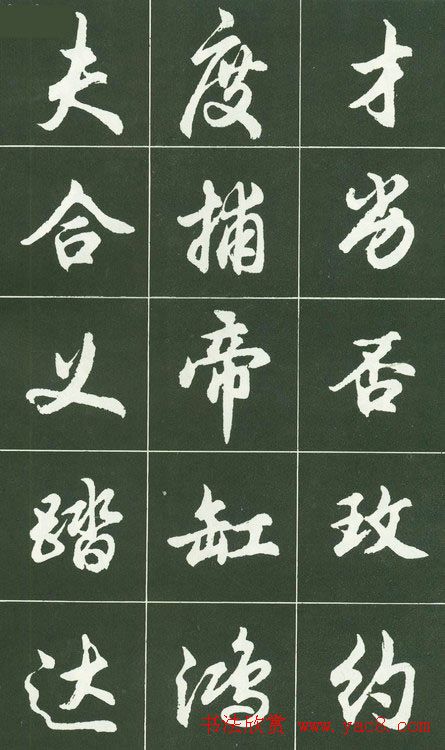 才劣否玫约
度捕帝缸鸿
夫合义踏达
书法欣赏 www.yac8.com